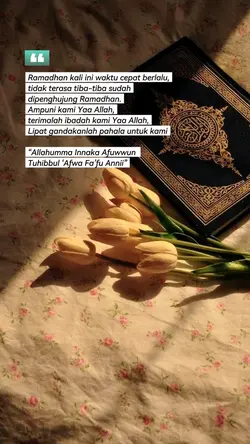 Ramadhan kali ini waktu cepat berlalu,
tidak terasa tiba-tiba sudah
dipenghujung Ramadhan.
Ampuni kami Yaa Allah,
terimolah ibadah kami Yaa Allah,
Lipat gandakanlah pahala untuk kami
“Allahumma Innaka Afuwwun
Tuhibbul ‘Afwa Fa’fu Annii”